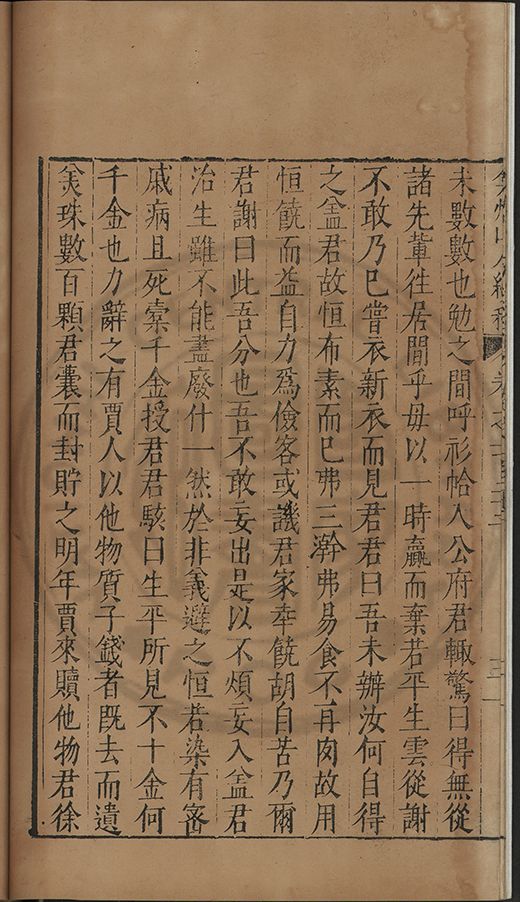 未數數也勉之間呼衫帢入公府君輙驚曰得無從
諸先輩徃居間乎毋以一時羸而棄若平生雲從謝
不敢乃巳嘗衣新衣而見君君曰吾未辦汝何自得
之葢君故恒布素而巳弗三澣弗易食不再肉故用
恒饒而益自力爲儉客或譏君家幸饒胡自苦乃爾
君謝曰此吾分也吾不敢妄出是以不煩妄入葢君
治生雖不能盡廢什一然於非義避之恒若染有宻
戚病且死槖千金授君君駭曰生平所見不十金何
千金也力辭之有賈人以他物質子錢者既去而遺
美珠數百顆君囊而封貯之明年賈來贖他物君徐